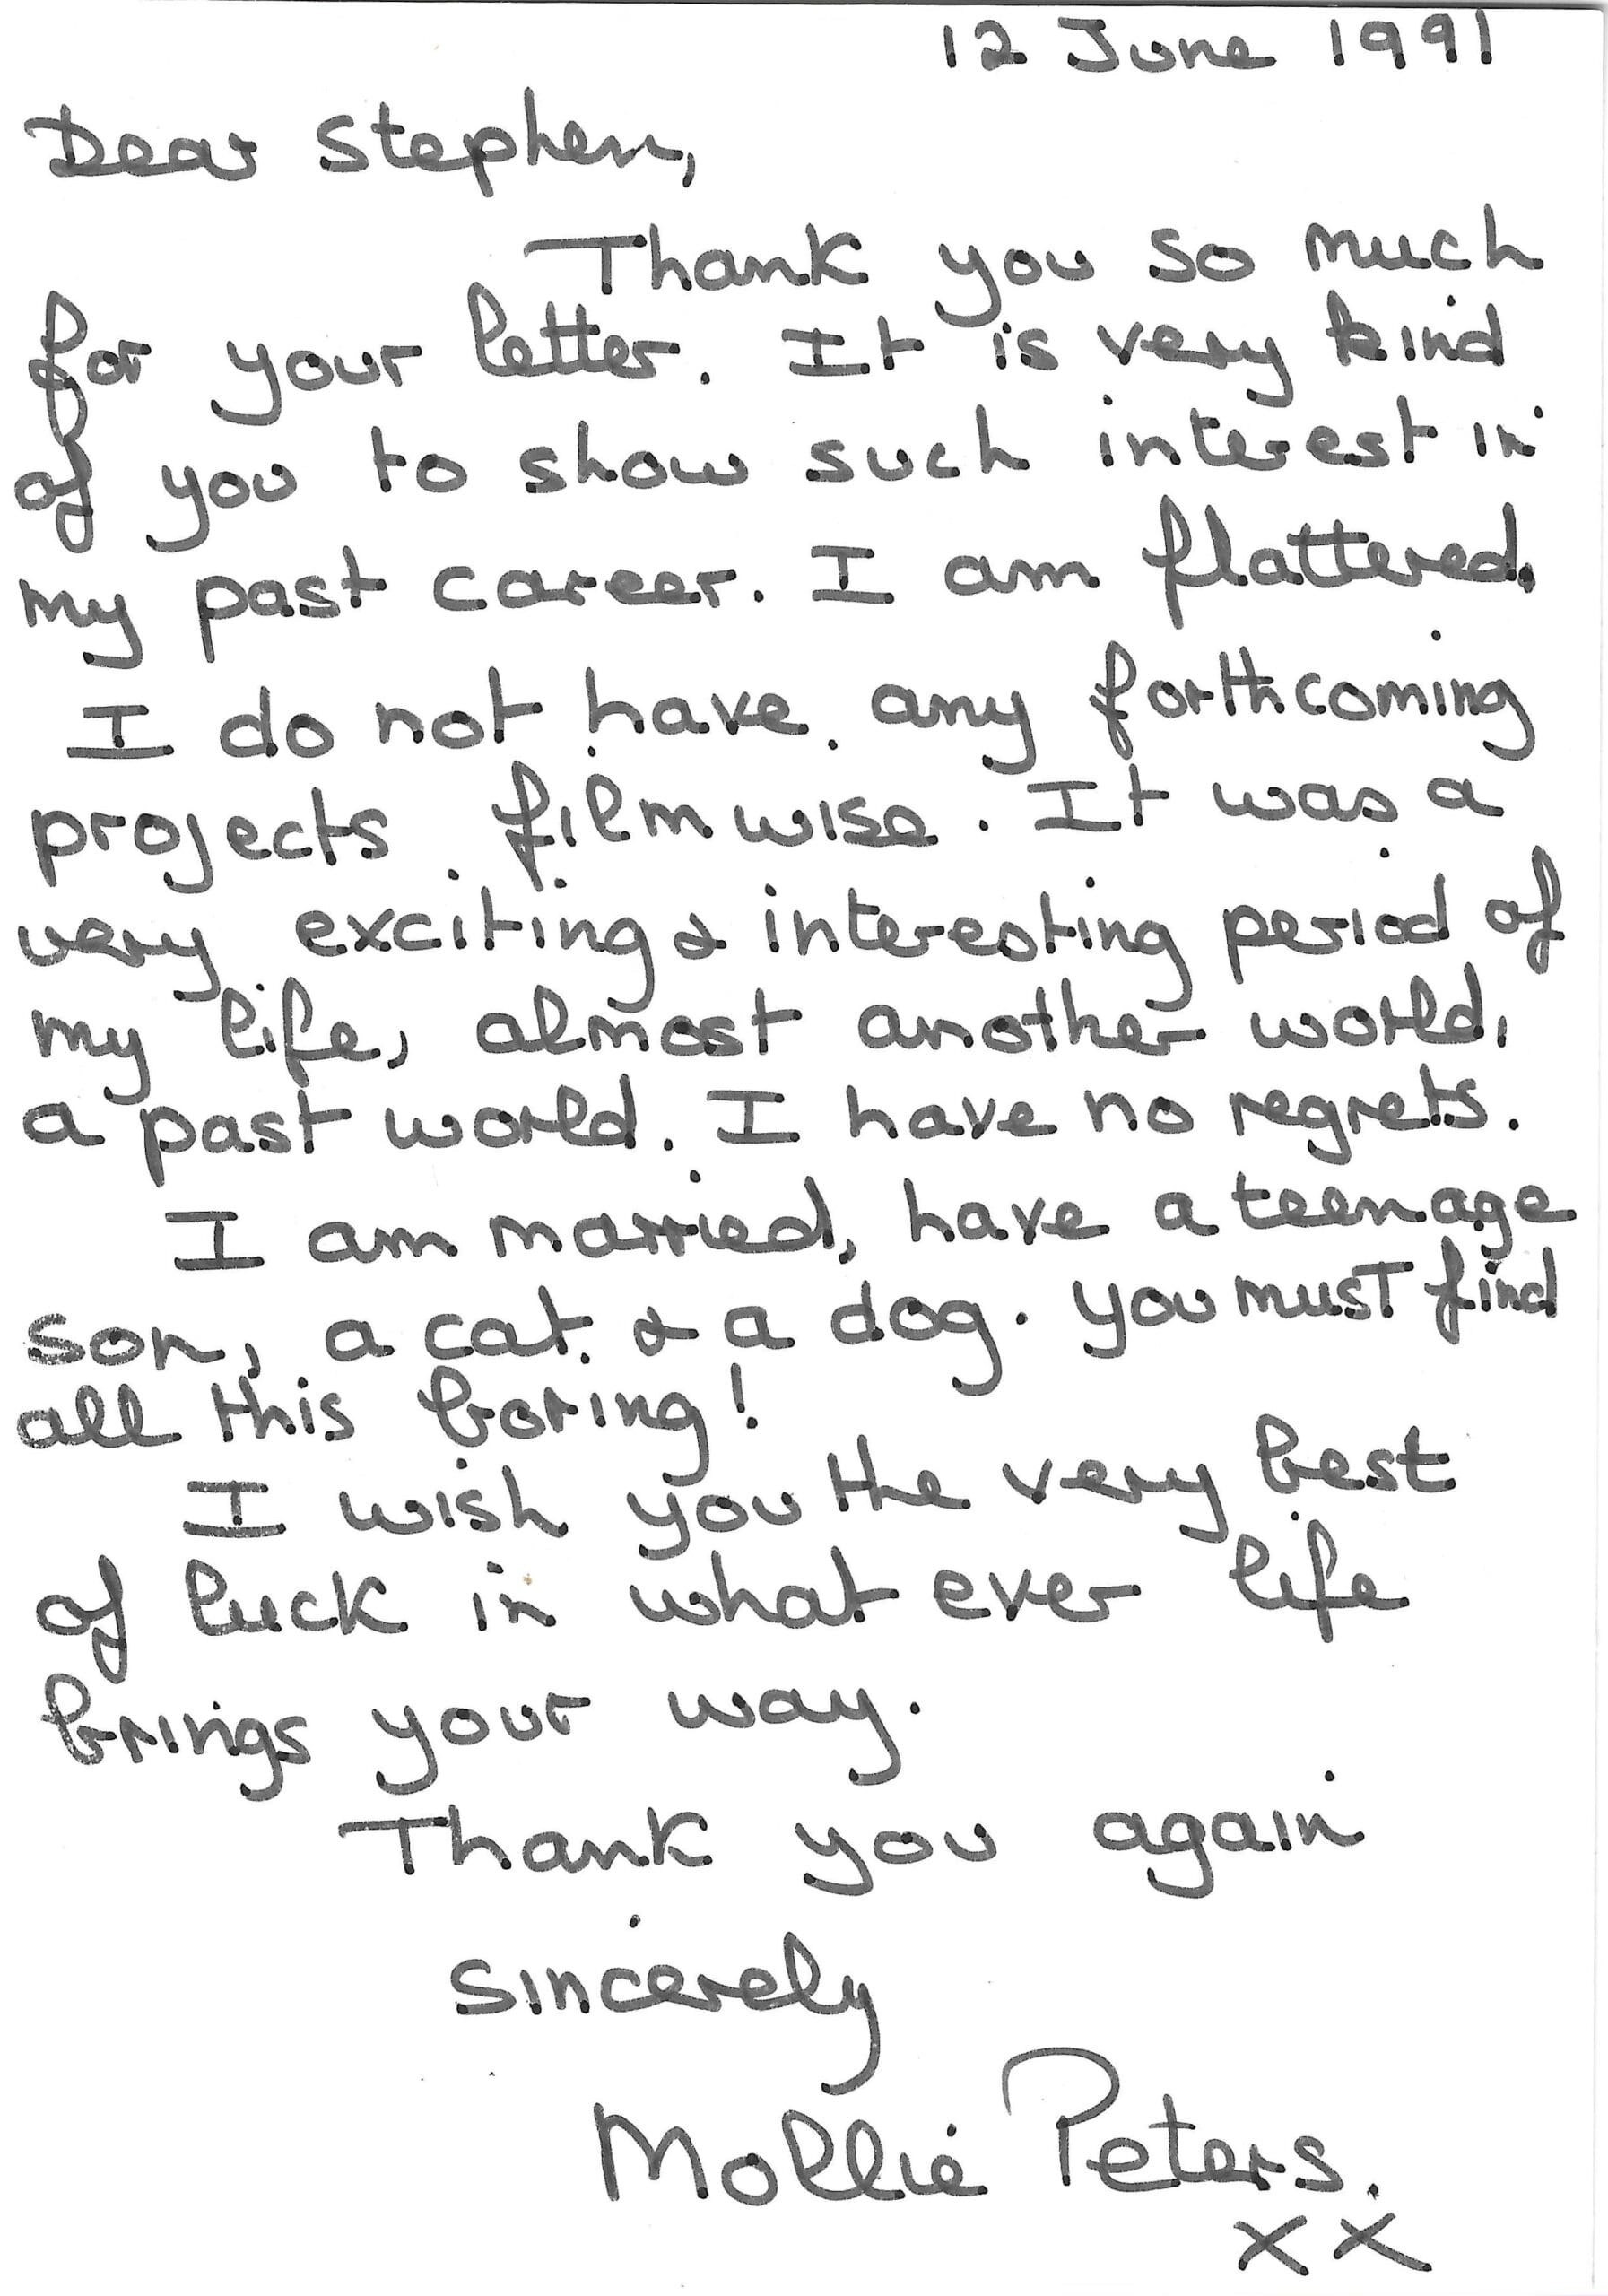 12 June 1991
Dear Stephen,
Thank you so much
for your letter. It is very kind
of you to show such interest in
my past career. I am flattered.
I do not have any forthcoming
projects filmwise. It was a
very exciting & interesting period of
my life, almost another world,
a past world. I have no regrets.
I am married, have a teenage
son, a cat & a dog. You must find
all this boring!
I wish you the very best
of luck in what ever life
brings your way.
Thank you again
Sincerely
Mollie Peters.
xx